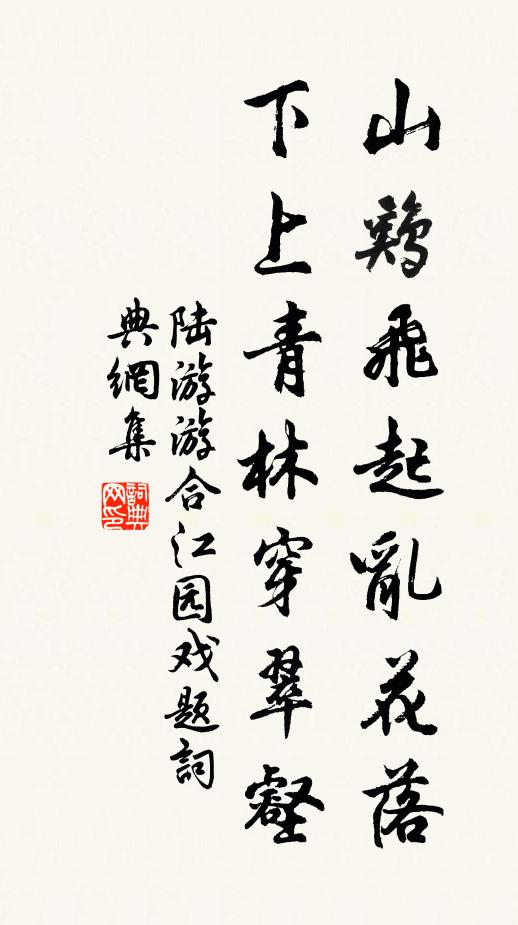 山鷄飛起亂花落
下上青林穿翠壑
陆游游合江园戏题詞
典網集
詞典網印